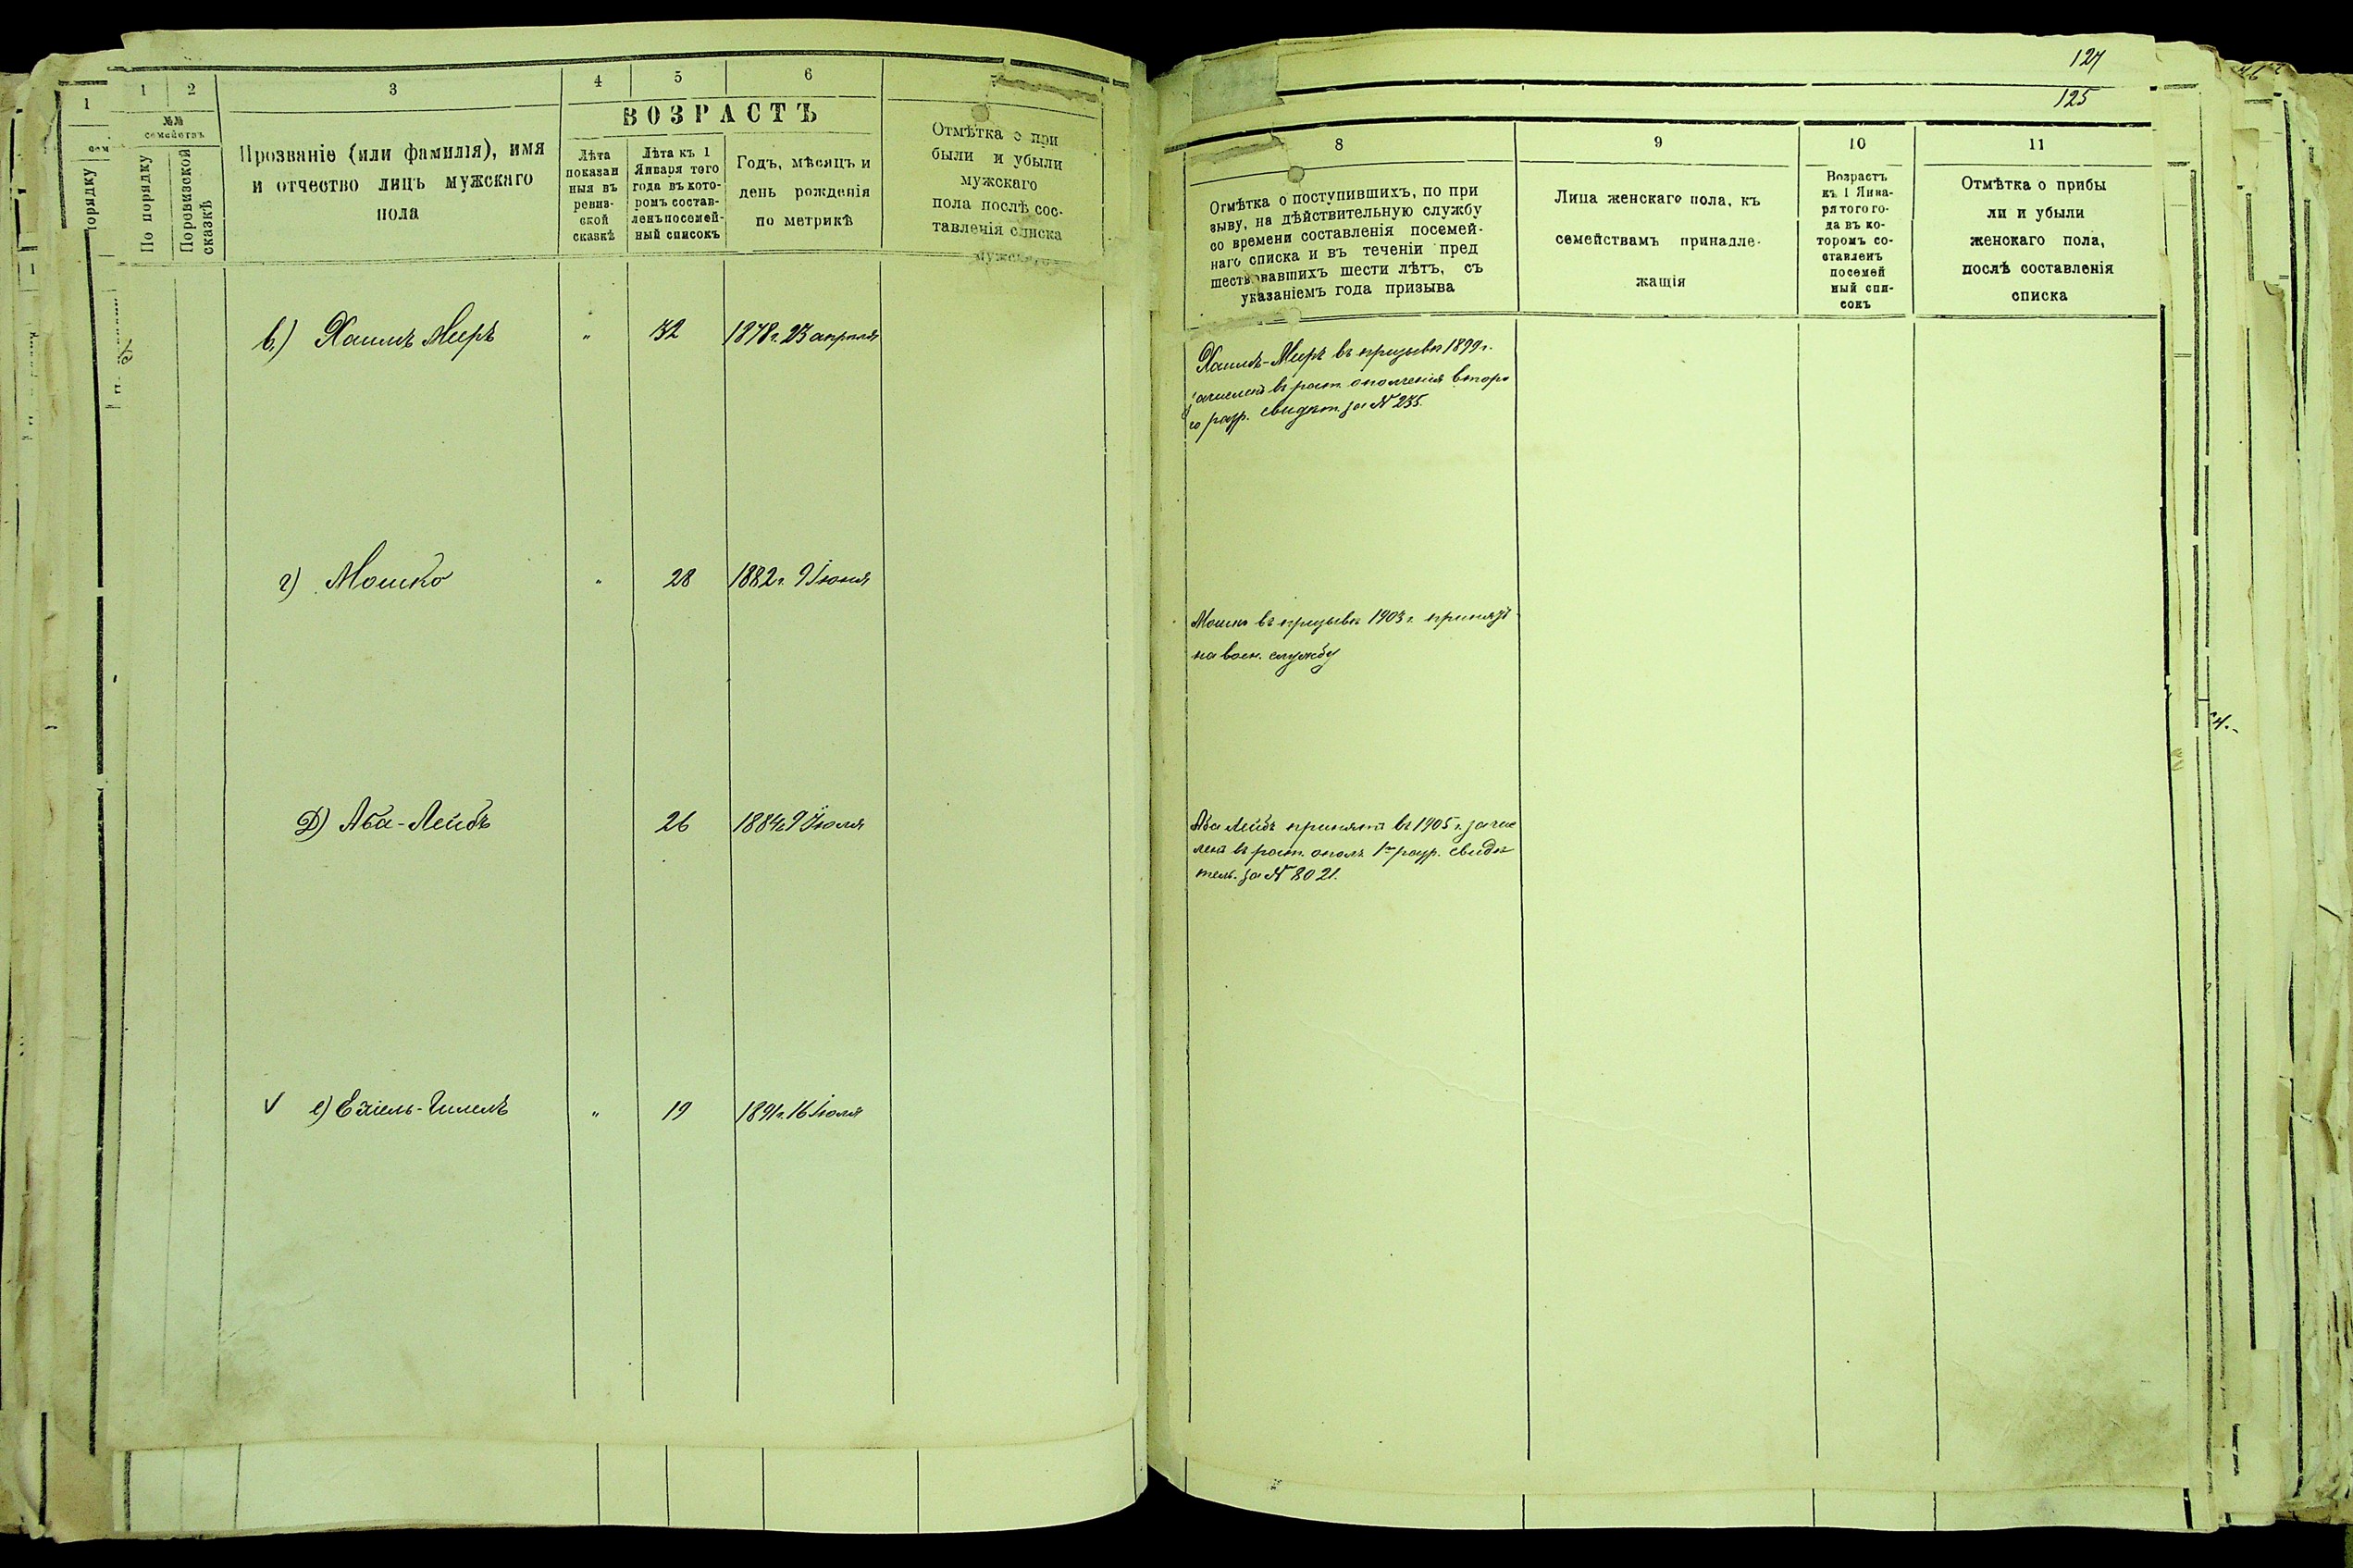 1 2 3 4 5 6
№№
семействъ
По порядку
Поревизской сказкѣ
Прозваніе (или фамилія), имя
и отчество лицъ мужскаго
пола
ВОЗРАСТЪ
Лѣта
показан
ныя въ
ревиз-
ской
сказкѣ
Лѣта къ 1
Января того
года въ кото-
ромъ состав-
ленъ посемей-
ный списокъ
Годъ, мѣсяцъ и
день рожденія
по метрикѣ
Отмѣтка о при
были и убыли
мужскаго
пола послѣ сос-
тавленія списка
в.) Хаимъ Меръ " 32 1878 г. 23 апрѣля
г) Мошко " 28 1882 г. 9 Іюня
Д) Аба-Лейбъ 26 1884 г. 9 Іюля
V е) Ехіель-Гилель " 19 1891 г. 16 Іюля
124
125
8 9 10 11
Отмѣтка о поступившихъ, по при
зыву, на дѣйствительную службу
со времени составленія посемей-
наго списка и въ теченіи пред
шествовавшихъ шести лѣтъ, съ
указаніемъ года призыва
Лица женскаго пола, къ
семействамъ принадле-
жащія
Возрастъ
къ 1 Янва-
ря того го-
да въ ко-
торомъ со-
ставленъ
посемей
ный спи-
сокъ
Отмѣтка о прибы
ли и убыли
женскаго пола,
послѣ составленія
списка
Хаимъ-Меръ въ призывѣ 1899 г.
зачисленъ въ рат. ополченія второ
го разр. свидѣт. за № 235.
Мошко въ призывѣ 1903 г. принятъ
на воен. службу
Аба Лейбъ принятъ въ 1905 г. зачис
ленъ въ рат. ополч. 1го разр. свидѣ
тель. за № 8021.